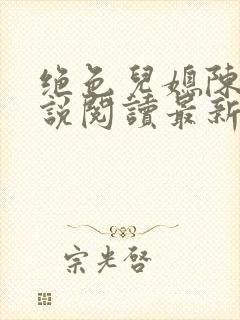 绝色兒媳陳
說閱讀最新
宗光啓